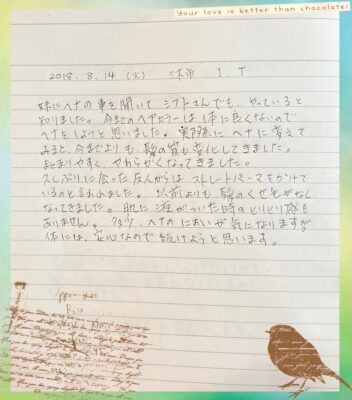 Your love is better than chocolate!
2018.8.14 (火) 三木市 I.T
妹にヘナの事を聞いて シフトさんでも、やっていると
知りました。今までのヘアカラーは 体に良くないので
ヘナをしようと思いました。実際に ヘナに変えて
みると、今までよりも 髪の質も変化してきました。
まとまりやすく、やわらかくなってきました。
久しぶりに会った友人からは ストレートパーマをかけて
いるのと言われました。以前よりも 髪のくせ毛がなく
なってきました。肌に液がついた時のヒリヒリ感も
ありません。少々、ヘナの においが気になりますが
体には、安心なので 続けようと思います。